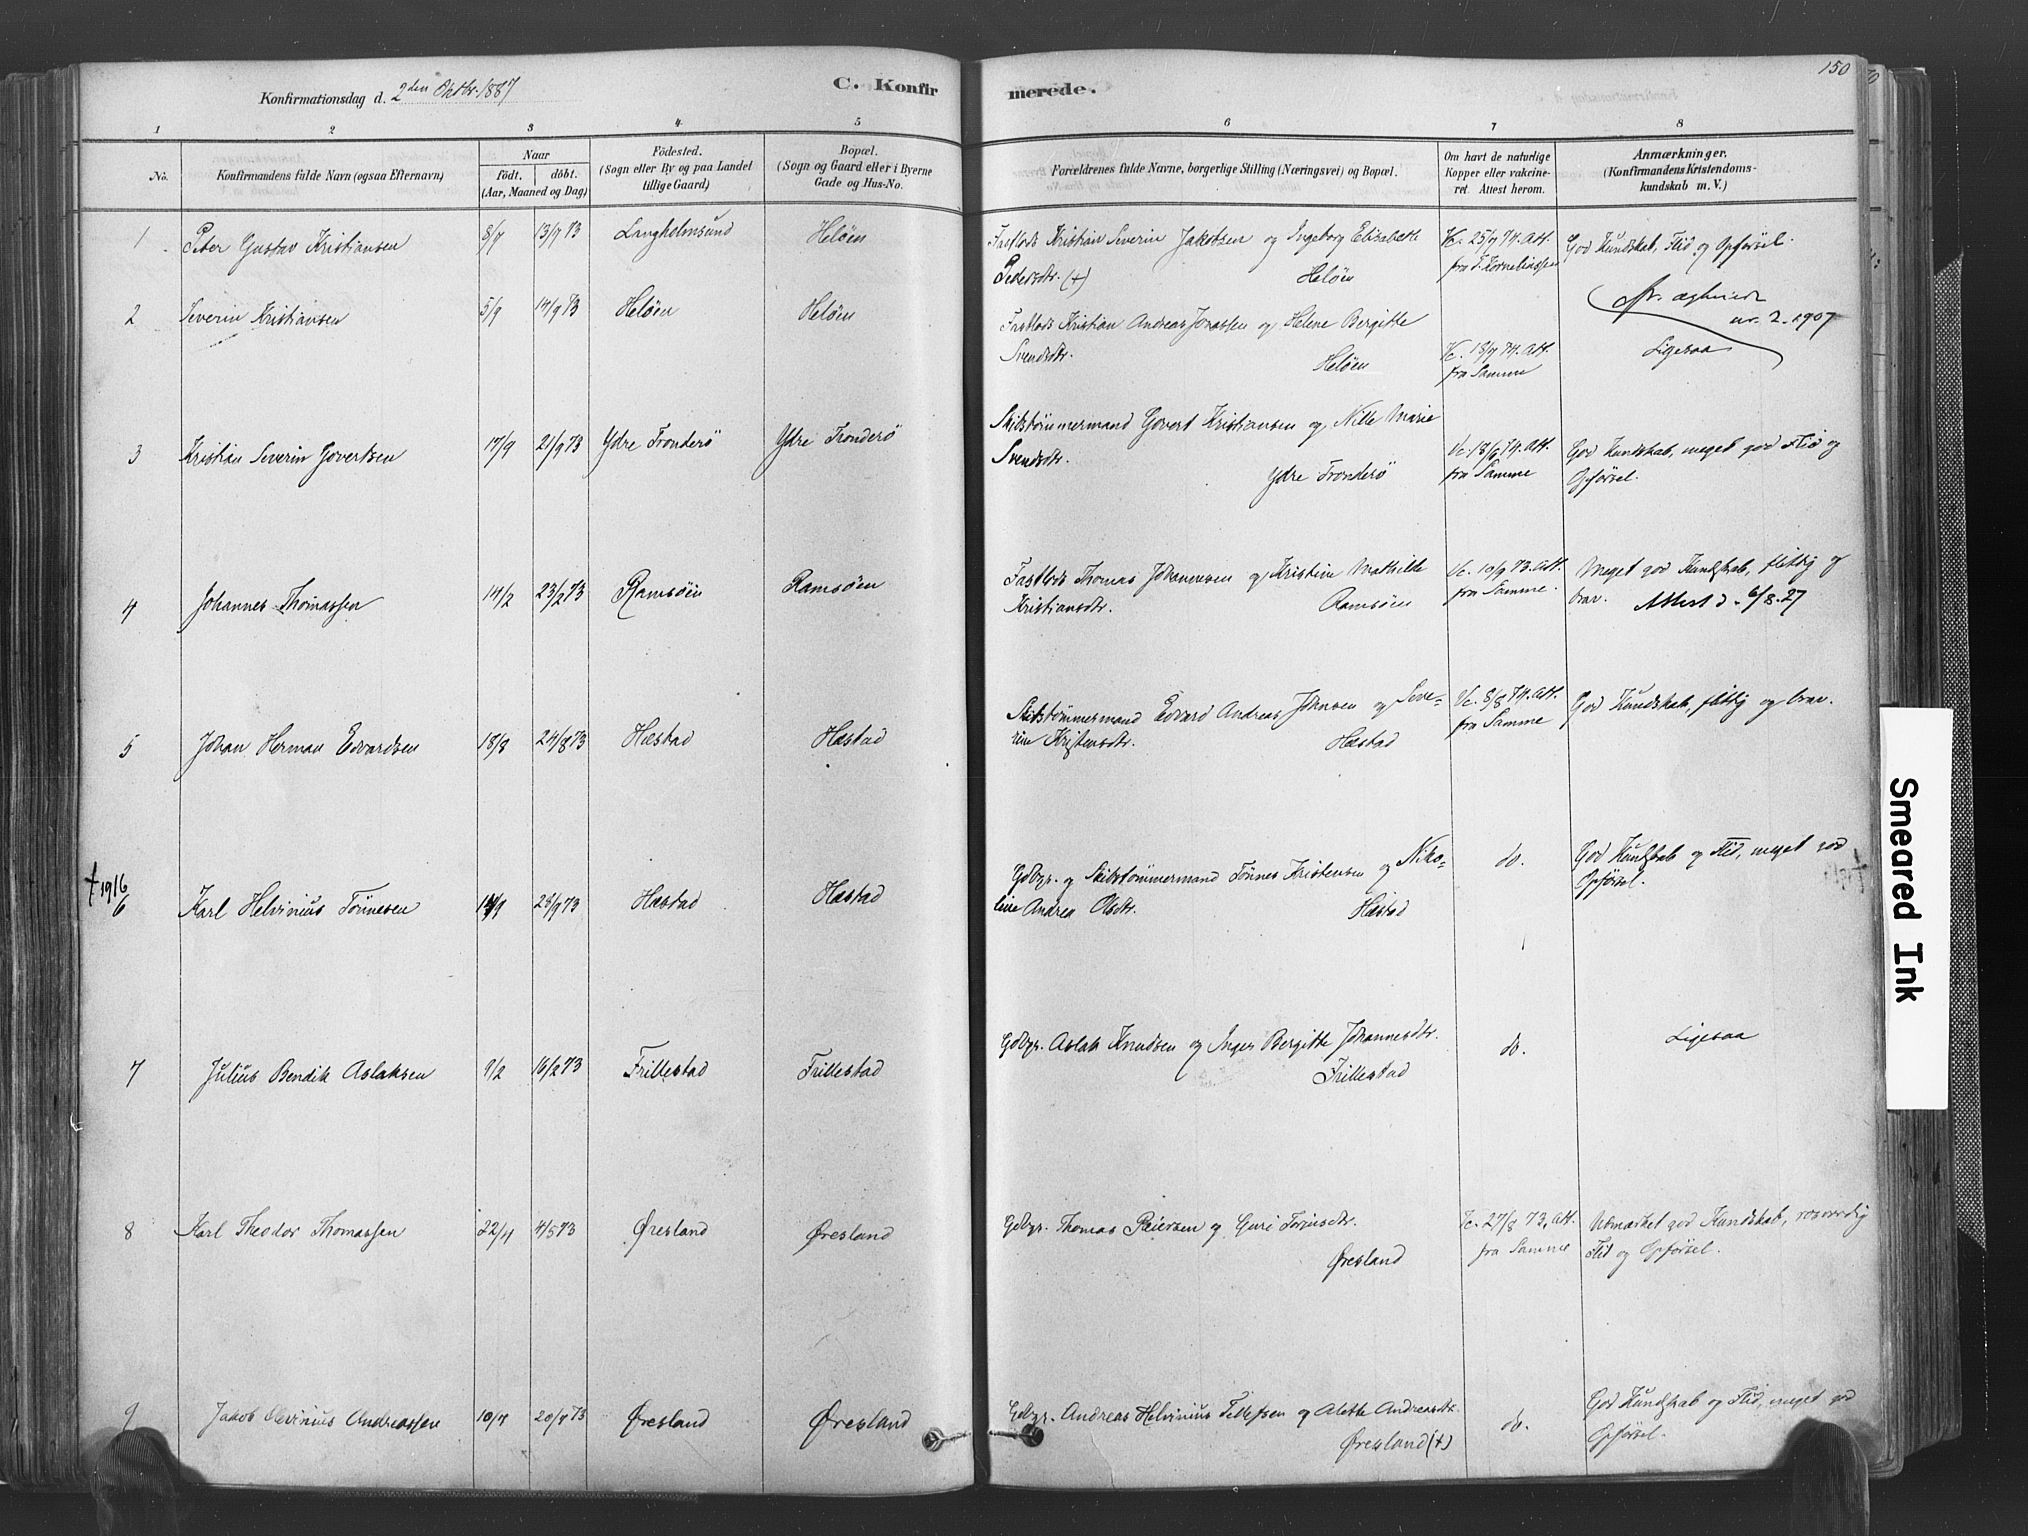 150
Konfirmationsdag d. 2den Oktbr. 1887
C. Konfirmerede.
1 2 3 4 5 6 7 8
No.
Konfirmandens fulde Navn (ogsaa Efternavn)
Naar
födt. döbt.
(Aar, Maaned og Dag)
Födested.
(Sogn eller By og paa Landet
tillige Gaard)
Bopæl.
(Sogn og Gaard eller i Byerne
Gade og Hus-No.
Forældrenes fulde Navne, borgerlige Stilling (Næringsvei) og Bopæl.
Om havt de naturlige
Kopper eller vakcine-
ret. Attest herom.
Anmærkninger.
(Konfirmandens Kristendoms-
kundskab m. V.)
1 Peter Gustav Kristiansen 8/7 13/7 73 Langholmsund Heløen
Fastlods Kristian Severin Jakobsen og Ingeborg Elisabette
Pedersdtr. (+) Heløen
Vc. 25/7 74. Att.
fra F. Korneliussen
God Kundskab, Flid og Opførsel.
2 Severin Kristiansen 5/9 14/9 73 Heløen Heløen
Fastlods Kristian Andreas Jonassen og Helene Bergitte
Svendsdtr. Heløen
Vc. 18/7 74. Att.
fra Samme
nr. 2. 1907
Ligesaa
3 Kristian Severin Govertsen 17/9 21/9 73 Ydre Tronderö Ydre Tronderö
Skibstømmermand Govert Kristiansen og Nille Marie
Svendsdtr.
Ydre Tronderö
Vc. 18/6 74. Att.
fra Samme
God Kundskab, meget god Flid og
Opførsel.
4 Johannes Thomassen 14/2 23/2 73 Ramsöen Ramsöen
Fastlods Thomas Johannesen og Kristine Mathilde
Kristiansdtr. Ramsöen
Vc. 10/9 73. Att.
fra Samme.
Meget god Kundskab, flittig og
brav. Attest d. 6/8.27
5 Johan Herman Edvardsen 18/8 24/8 73 Hæstad Hæstad
Skibstømmermand Edvard Andreas Johnsen og Seve-
rine Kristensdtr. Hæstad
Vc. 8/8 74. Att.
fra Samme
God Kundskab, flittig og brav.
† 1916
6 Karl Helvinius Tönnesen /9 28/9 73 Hæstad Hæstad
Gdbgr. og Skibstømmermand Tönnes Kristensen og Niko-
line Andrea Olsdtr. Hæstad
do.
God Kundskab og Flid, meget god
Opførsel.
7 Julius Bendik Aslaksen 9/2 16/2 73 Frillestad Frillestad
Gdbgr. Aslak Knudsen og Inger Bergitte Johannesdtr.
Frillestad
do.
Ligesaa
8 Karl Theodor Thomassen 22/4 4/5 73 Øresland Øresland
Gdbgr. Thomas Reiersen og Guri Torinsdtr.
Øresland
Vc. 27/8 73. Att.
fra Samme
Udmærket god Kundskab, rosværdig
Flid og Opførsel.
9 Jakob Olevinius Andreassen 10/7 20/7 73 Øresland Øresland
Gdbgr. Andreas Helvinius Tellefsen og Alette Andreasdtr.
Øresland (+)
do.
God Kundskab og Flid, meget god
Opførsel.
Smeared Ink